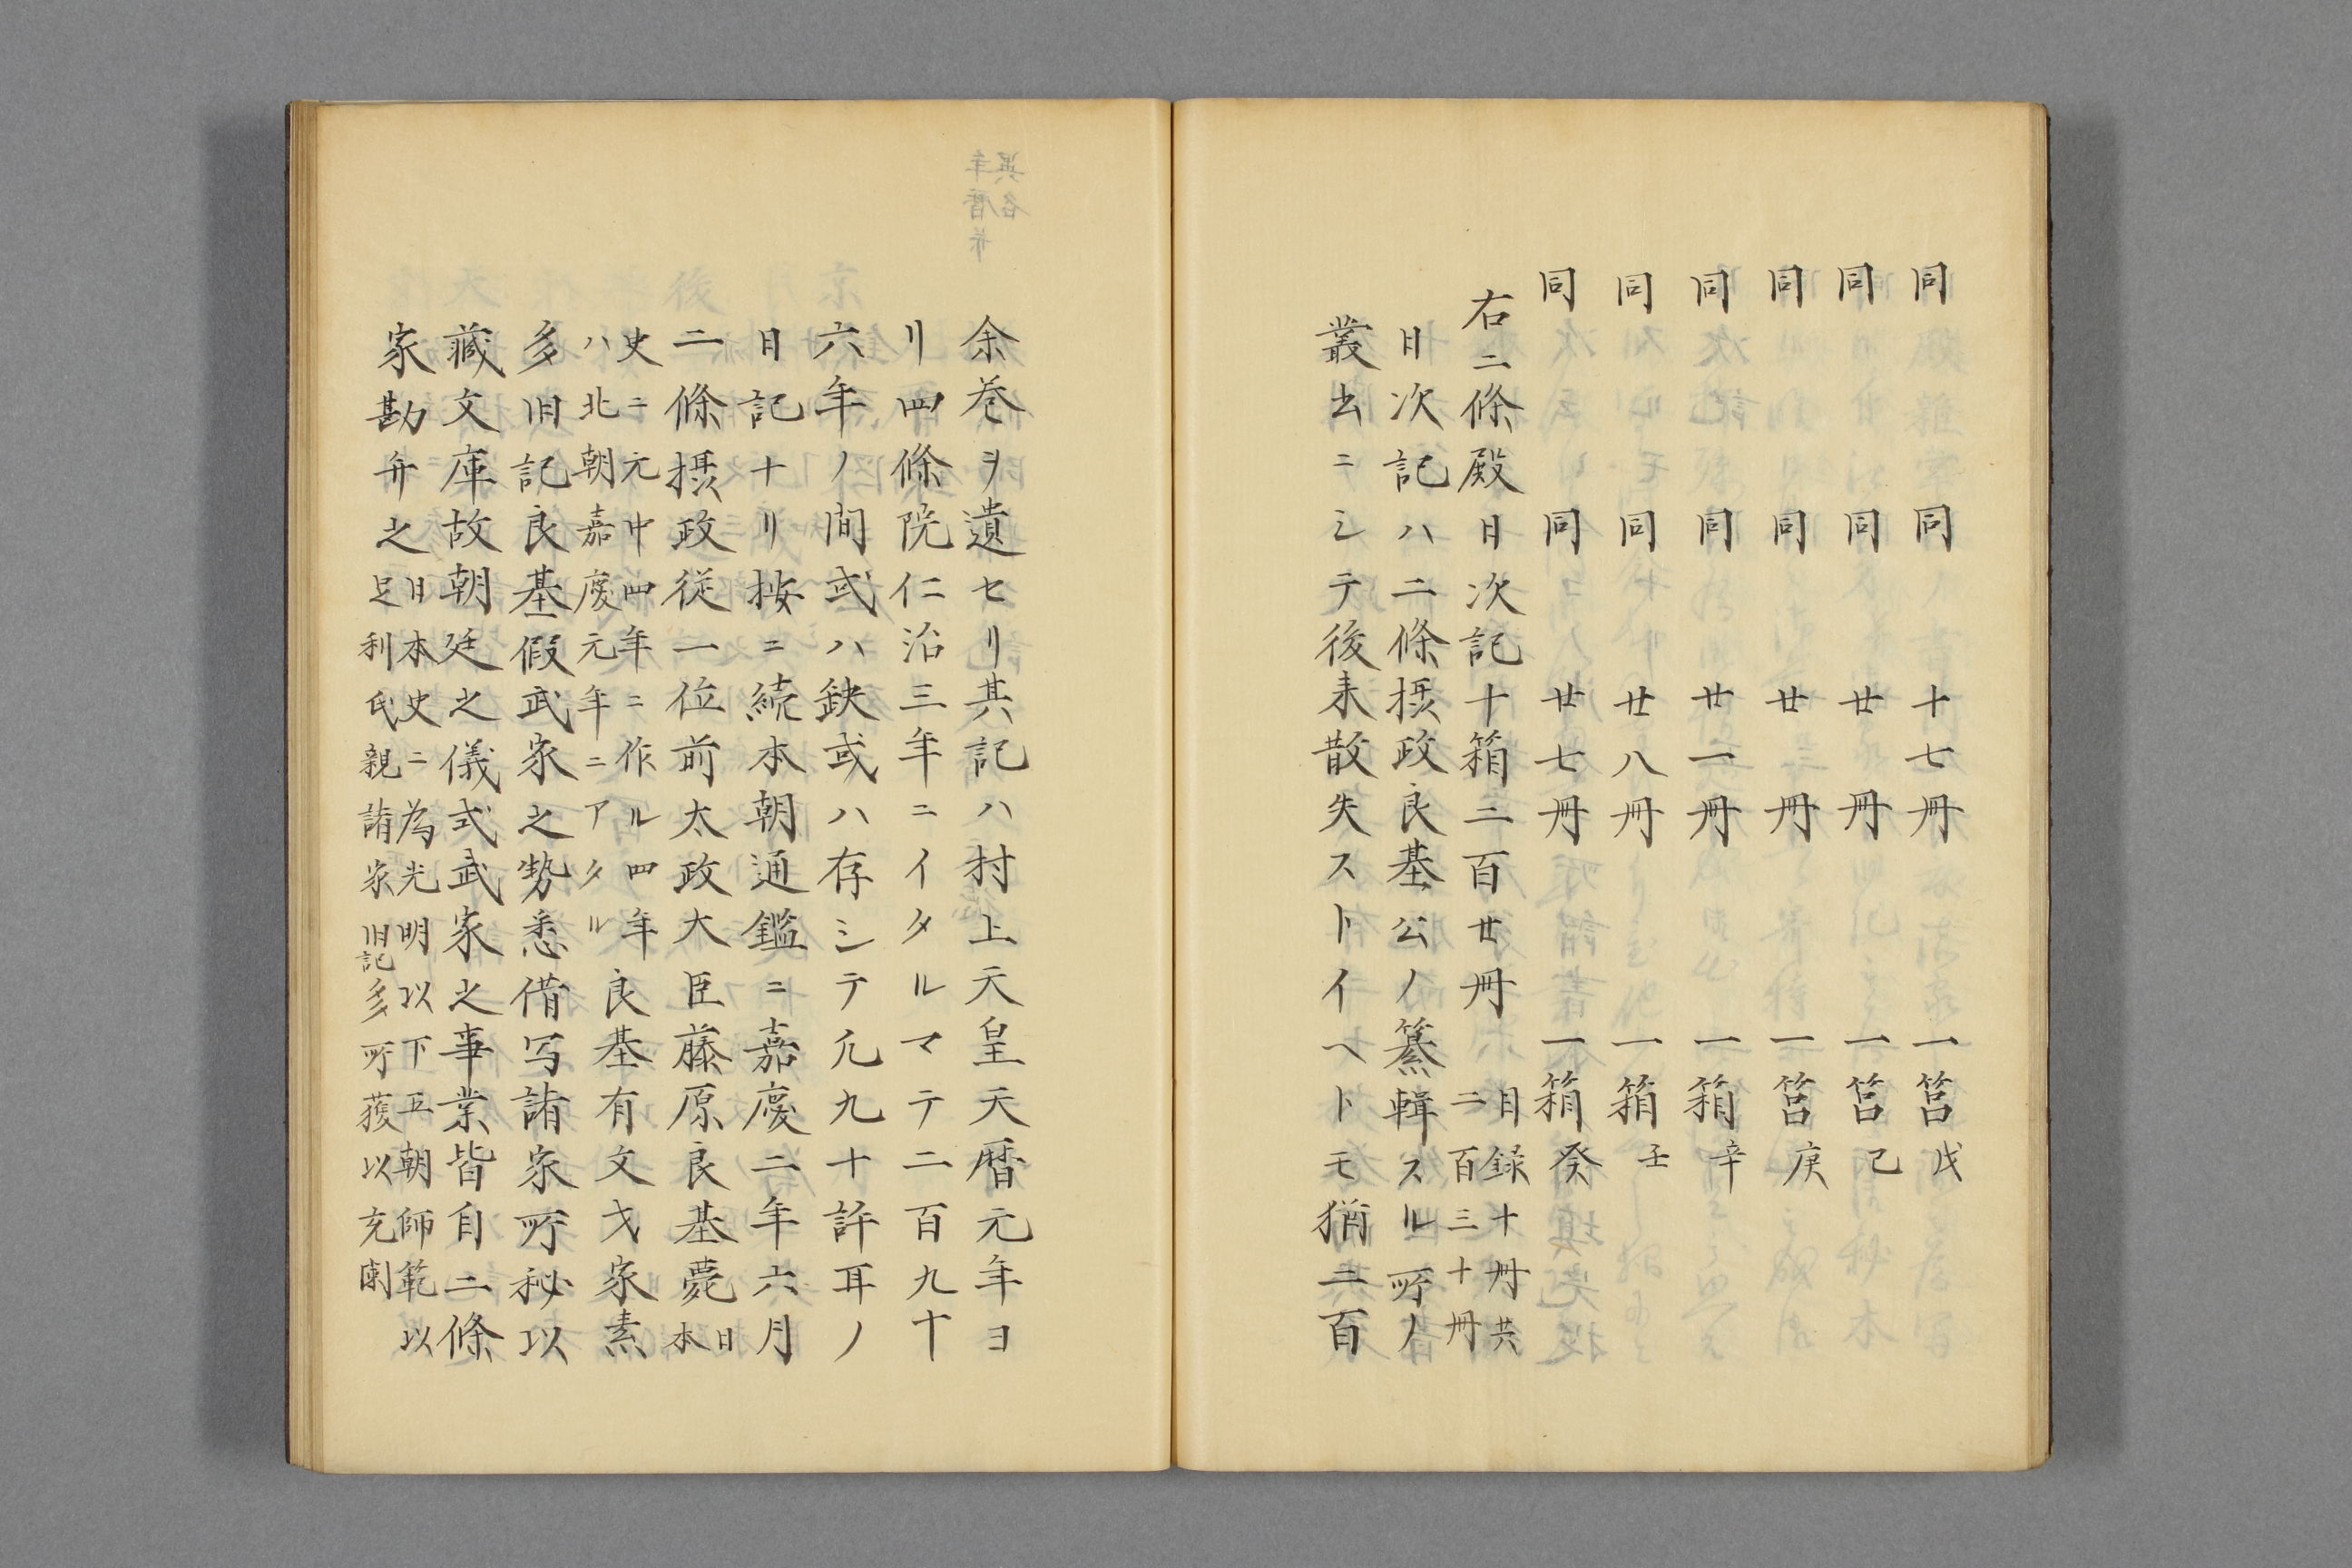 同 同 十七冊 一筥戊
同 同 廿冊 一筥己
同 同 廿三冊 一筥庚
同 同 廿一冊 一箱辛
同 同 廿八冊 一箱壬
同 同 廿七冊 一箱癸
右二條殿日次記十箱二百廿冊
目録十冊共
二百三十冊
日次記ハ二條摂政良基公ノ纂輯スル所ノ
叢出ニシテ後来散失ストイヘトモ猶二百
余巻ヲ遺セリ其記ハ村上天皇天暦元年ヨ
リ四條院仁治三年ニイタルマテ二百九十
六年ノ間或ハ缺或ハ存シテ凢九十許耳ノ
日記ナリ按ニ続本朝通鑑ニ嘉慶二年六月
二條摂政従一位前太政大臣藤原良基薨
日
本
史ニ元中四年ニ作ル四年
ハ北朝嘉慶元年ニアタル
良基有文才家素
多旧記良基假武家之勢悉借写諸家所秘以
藏文庫故朝廷之儀式武家之事業皆自二條
家勘弁之
日本史ニ為光明以下五朝師範以
足利氏親諸家旧記多所獲以充闕